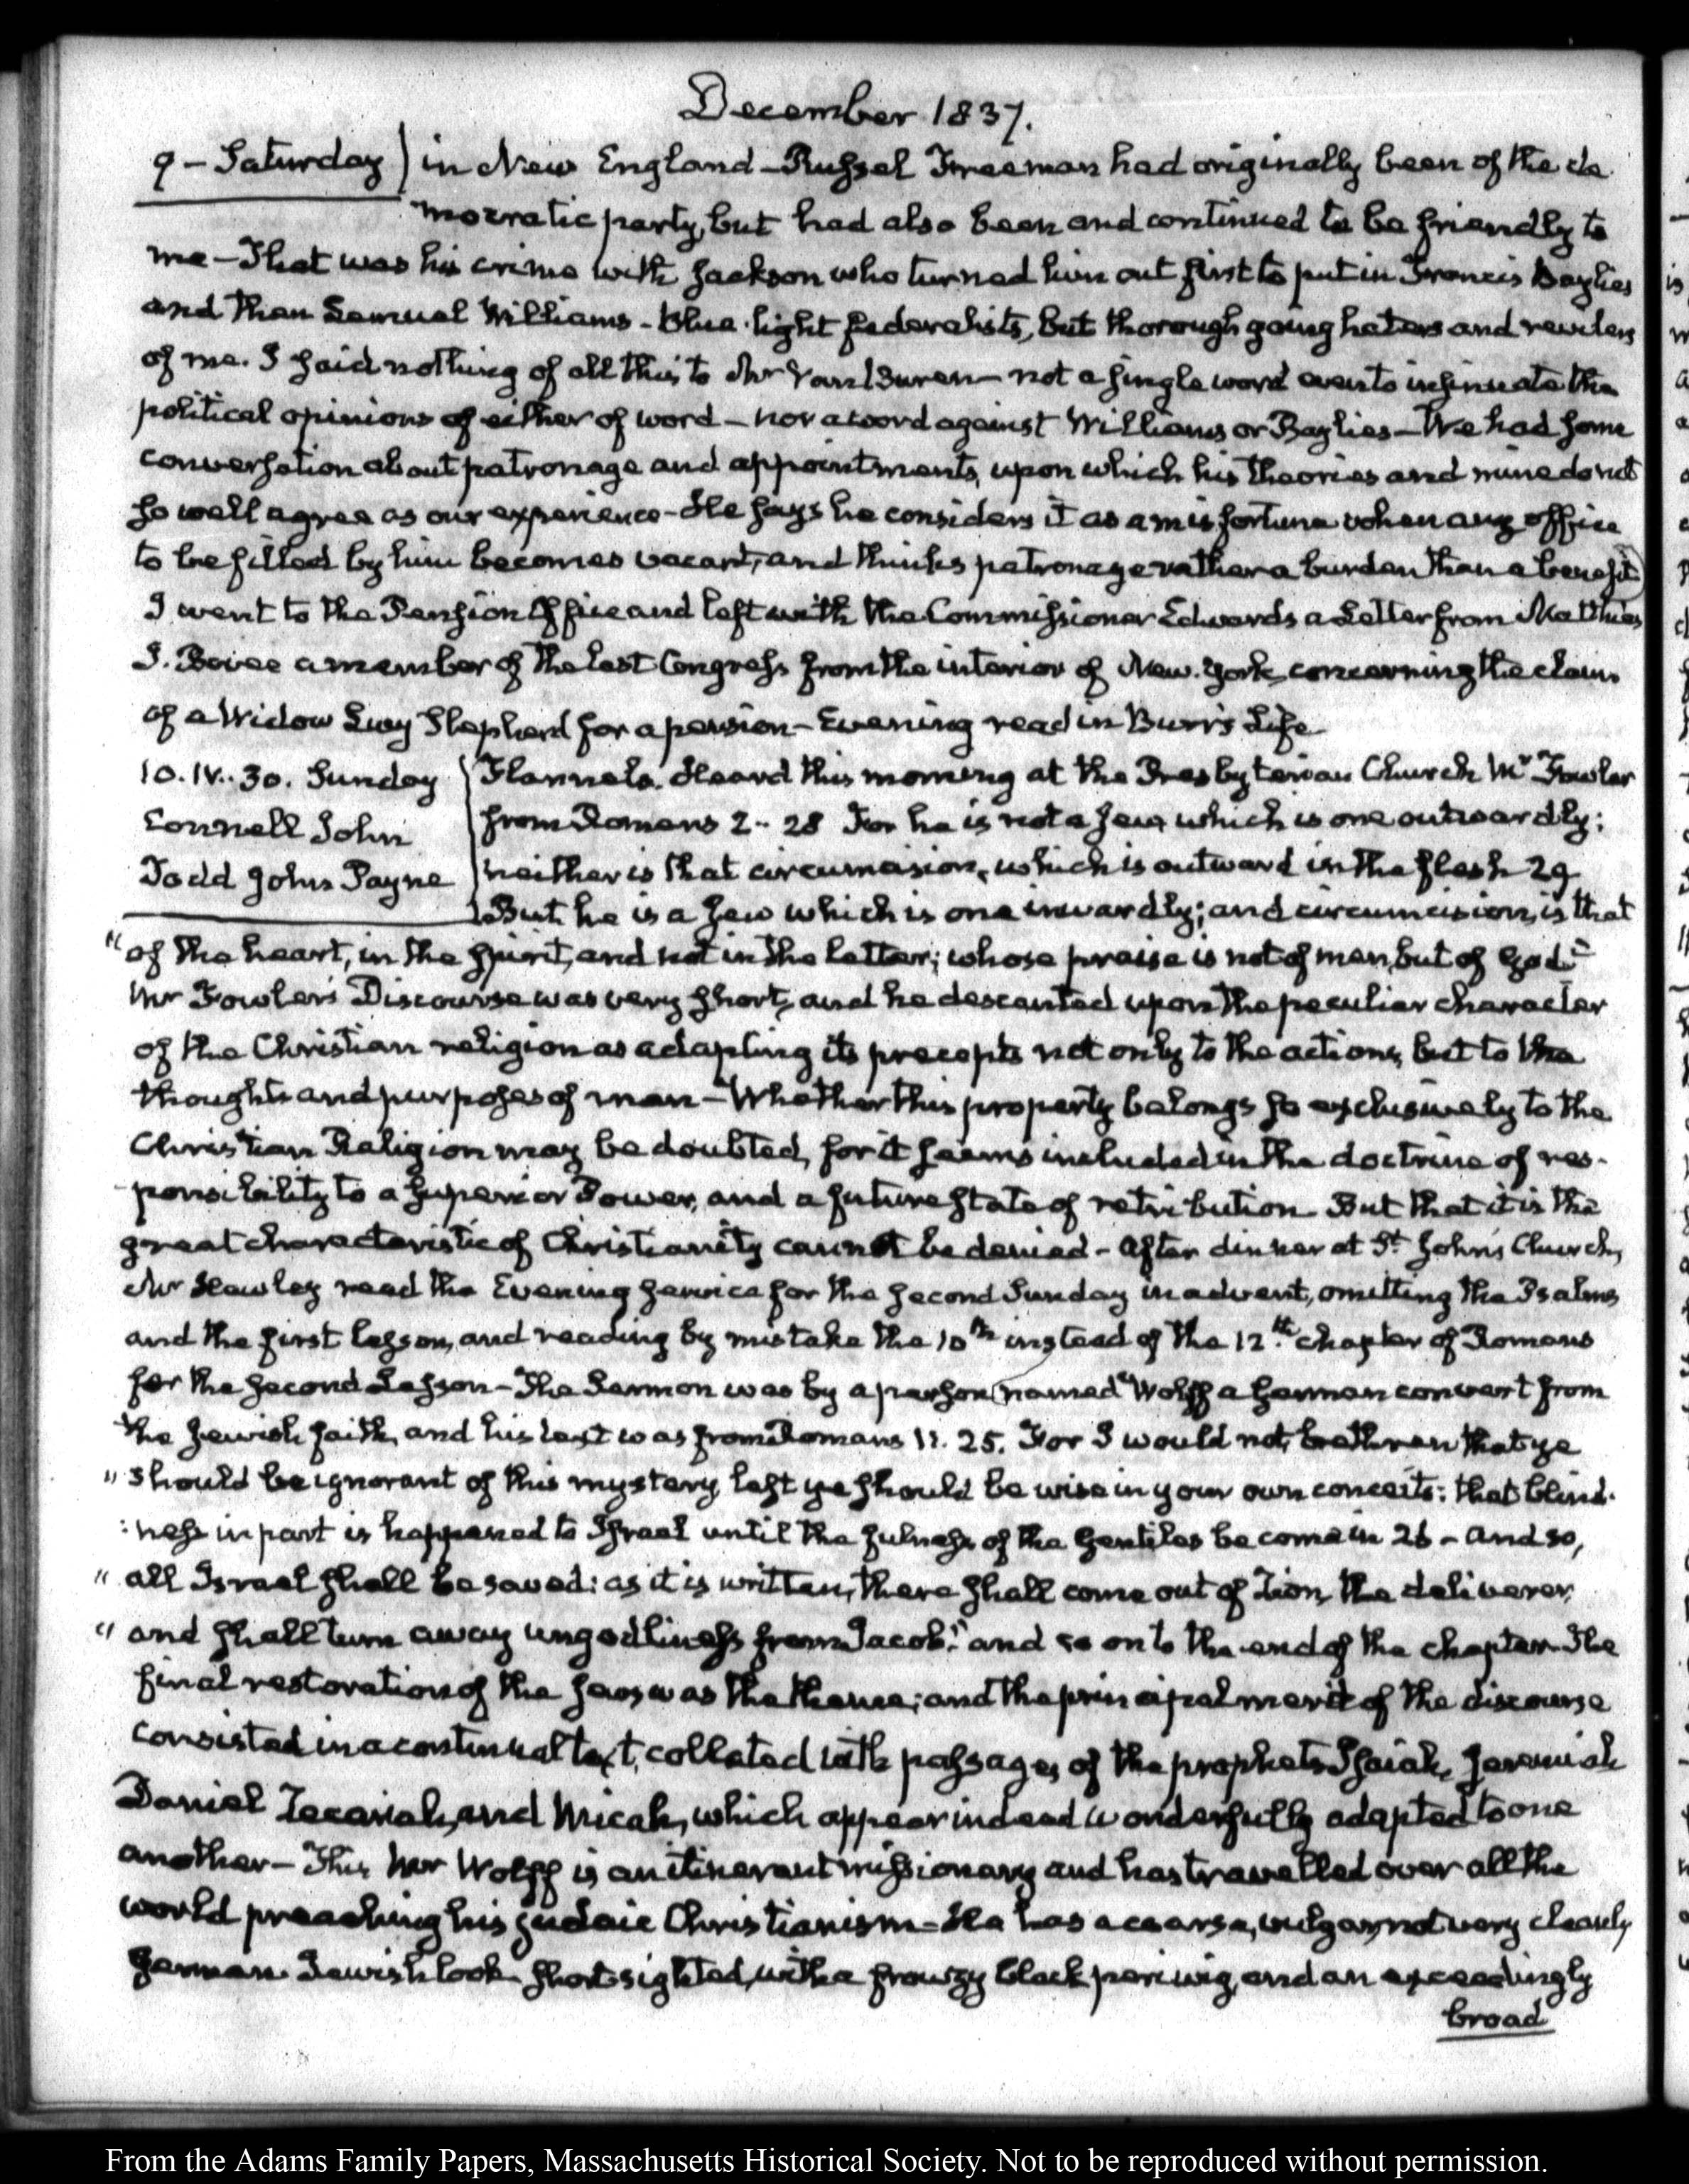 December 1837.
9 – Saturday) in New England – Russel Freeman had originally been of the de
mocratic party, but had also been and continued to be friendly to
me – That was his crime with Jackson who turned him out first to put in Francis Baylies
and then Samuel Williams – Blue-light federalists, but thorough going haters and revilers
of me. I said nothing of all this to Mr Van Buren – not a single word even to insinuate the
political opinions of either of word – nor a word against Williams or Baylies – We had some
conversation about patronage and appointments, upon which his theories and mine do not
so well agree as our experience – He says he considers it as a misfortune when any office
to be filled by him becomes vacant, and thinks patronage rather a burden than a benefit)
I went to the Pension Office and left with the Commissioner Edwards a Letter from Matthias
J. Bovee a member of the last Congress from the interior of New-York, concerning the claim
of a Widow Lucy Shepherd for a pension – Evening read in Burr's Life
10. IV.. 30. Sunday Flannels. Heard this morning at the Presbyterian Church Mr Fowler
Connell John from Romans 2.. 28 For he is not a Jew which is one outwardly;
Todd John Payne neither is that circumcision, which is outward in the flesh 29
But he is a Jew which is one inwardly; and circumcision, is that
"of the heart, in the spirit, and not in the letter; whose praise is not of men, but of God."
Mr Fowler's Discourse was very short, and he descanted upon the peculiar character
of the Christian religion as adapting its precepts not only to the actions, but to the
thoughts and purposes of man – Whether this property belongs so exclusively to the
Christian Religion may be doubted, for it seems included in the doctrine of res-
ponsibility to a Superior Power, and a future state of retribution But that it is the
great characteristic of Christianity cannot be denied – After dinner at St John's Church,
Mr Hawley read the Evening service for the second Sunday in advent, omitting the Psalms
and the first lesson, and reading by mistake the 10th instead of the 12th chapter of Romans
for the second Lesson – The Sermon was by a person named Wolff a German convert from
the Jewish faith, and his text was from Romans 11. 25. For I would not, brethren that ye
"should be ignorant of this mystery lest ye should be wise in your own conceits: that blind-
:ness in part is happened to Israel until the fulness of the Gentiles be come in 26 – And so,
"all Israel shall be saved: as it is written, there shall come out of Zion, the deliverer,
"and shall turn away ungodliness from Jacob:" and so on to the end of the chapter. The
final restoration of the Jews was the theme; and the principal merit of the discourse
consisted in a continual text, collated with passages of the prophets Isaiah, Jeremiah
Daniel Zecariah, and Micah, which appear indeed wonderfully adapted to one
another – This Mr Wolff is an itinerant missionary and has travelled over all the
world preaching his Judaic Christianism – He has a coarse, vulgar, not very cleanly
German Jewish look short-sighted, with a frowzy black periwig, and an exceedingly
broad
From the Adams Family Papers, Massachusetts Historical Society. Not to be reproduced without permission.